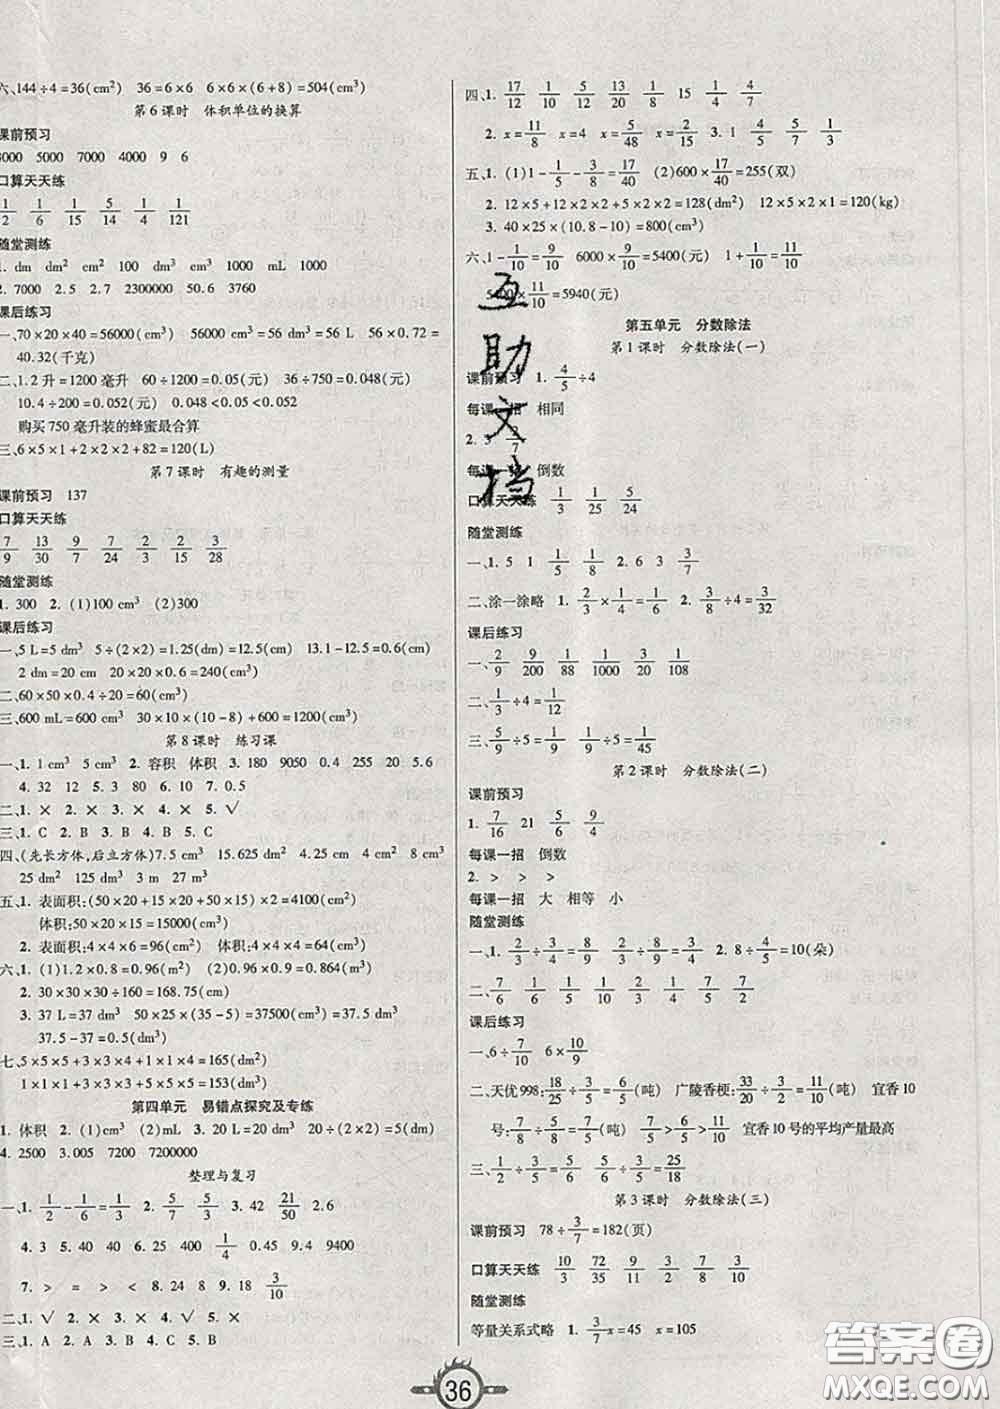 六、144÷4=36(cm²)　36=6×6　6×6×(6+8)=504(cm³)
第6课时　体积单位的换算
课前预习
3000　5000　7000　4000　9　6
口算天天练
1/2　1/6　1/15　5/14　1/4　1/121
随堂测练
1. dm　dm²　cm²　100　dm³　cm³　1000　mL　1000
2. 7000　2.5　2.7　2300000　5.6　3760
课后练习
一、70×20×40=56000(cm³)　56000 cm³=56 dm³=56 L　56×0.72=
40.32(千克)
二、1.2升=1200毫升　60÷1200=0.05(元)　36÷750=0.048(元)
10.4÷200=0.052(元)　0.048<0.05<0.052
购买750毫升装的蜂蜜最合算
三、6×5×1+2×2×2+82=120(L)
第7课时　有趣的测量
课前预习　137
口算天天练
7/9　13/30　9/7　7/24　2/15　3/28
随堂测练
1. 300　2. (1)100 cm³　(2)300
课后练习
一、5 L=5 dm³　5÷(2×2)=1.25(dm)=12.5(cm)　13.1-12.5=0.6(cm)
2 dm=20 cm　20×20×0.6=240(cm³)
二、60×50×(20-13)=21000(cm³)
三、600 mL=600 cm³　30×10×(10-8)+600=1200(cm³)
第8课时　练习课
一、1. 1 cm³　5 cm³　2. 容积　体积　3. 180　9050　0.4　255　20　5.6
4. 32　12　5. 3　80　6. 10　7. 0.5
二、1. ×　2. ×　3. ×　4. ×　5. √
三、1. C　2. B　3. B　4. B　5. B
四、(先长方体,后立方体)7.5 cm³　15.625 dm³　4.25 cm　4 cm²　8 cm³
25 dm²　125 dm³　3 m　27 m³
五、1. 表面积:(50×20+15×20+50×15)×2=4100(cm²)
体积:50×20×15=15000(cm³)
2. 表面积:4×4×6=96(cm²)　体积:4×4×4=64(cm³)
六、1. (1)1.2×0.8=0.96(m²)　(2)1.2×0.8×0.9=0.864(m³)
2. 30×30×30÷160=168.75(cm)
3. 37 L=37 dm³　50×25×(35-5)=37500(cm³)=37.5 dm³
37.5-37=0.5(dm³)
七、5×5×5+3×3×4+1×1×4=165(dm²)
1×1×1+3×3×3+5×5×5=153(dm³)
第四单元　易错点探究及专练
1. 体积　2. (1)cm³　(2)mL　3. 20 L=20 dm³　20÷(2×2)=5(dm)
4. 2500　3.005　7200　7200000
整理与复习
一、1. 1/2-1/6=1/3　2. 5/7　5/3　3. 42　21/50　2.6
4. 3　5. 40　40　6. 25　400　1/4　0.45　9.4　9400
7. >　=　<　>　8. 24　8　9. 18　3/10
二、1. √　2. ×　3. ×　4. √　5. √
三、1. A　2. B　3. A　4. C　5. B
四、1. 17/12　1/10　5/12　7/10　1/8　15　1/4　4/7
2. x=11/8　x=4　x=5/48　x=2/15　3. 1　4/5　5/7　1/3
五、1. (1)1-1/5-3/8=17/40　(2)600×17/40=255(双)
2. 12×5+12×2×2+5×2×2=128(dm²)　12×5×2×1=120(kg)
3. 40×25×(10.8-10)=800(cm³)
六、1-1/10=9/10　6000×9/10=5400(元)　1+1/10=11/10
5400×11/10=5940(元)
第五单元　分数除法
第1课时　分数除法(一)
课前预习　1. 4/5÷4
每课一招　相同
2. 3　3/7
每课一招　倒数
口算天天练　1/3　1/25　5/24
随堂测练
一、1. 5　1　1/5　1/5　2. 6　3　3/7
二、涂一涂略　1. 2/3×1/4=1/6　2. 3/8÷4=3/32
课后练习
一、2/9　9/200　1/88　1/1000　3/20　1/108
二、1/3÷4=1/12
三、5/9÷5=1/9　1/9÷5=1/45
第2课时　分数除法(二)
课前预习
1. 7/16　21　5/6　9/4
每课一招　倒数
2. >　>　>
每课一招　大　相等　小
随堂测练
一、1. 2/3÷3/4=8/9　2/3÷8/9=3/4　2. 8÷4/5=10(朵)
二、7/6　1/6　1/5　1/10　2/3　4/7　7/6　7/2
课后练习
一、6÷7/10　6×10/9
二、天优998:18/25÷3/5=6/5(吨)　广陵香梗:33/20÷3/2=11/10(吨)　宜香10
号:7/8÷5/8=7/5(吨)　7/5>6/5>11/10　宜香10号的平均产量最高
三、1/2÷3/5=5/6　5/6÷3/5=25/18
第3课时　分数除法(三)
课前预习　78÷3/7=182(页)
口算天天练　10/3　72/35　9/11　3/8　2/7　3/10
随堂测练
等量关系式略　1. 3/7x=45　x=105
互助文档
36
答案圈
MXQE.COM